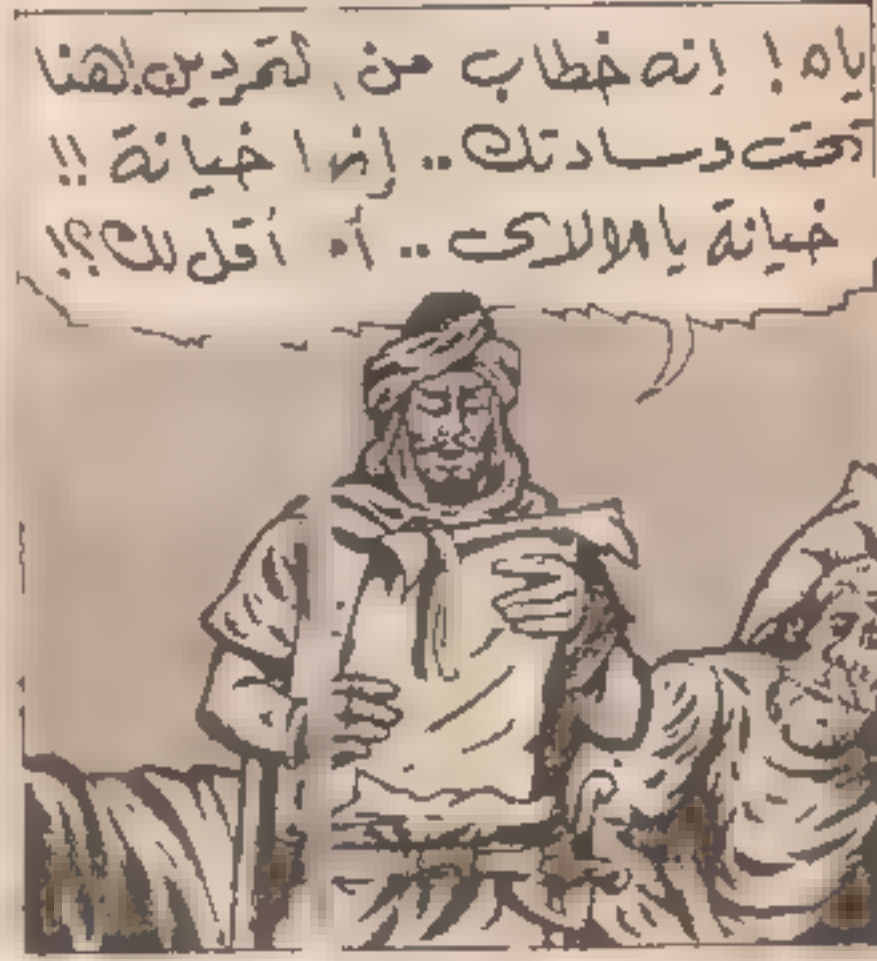 ياه! إنه خطاب من المتمردين هنا
تحت وسادتك.. إنها خيانة!!
خيانة يا مولاى.. ألم أقل لك؟!